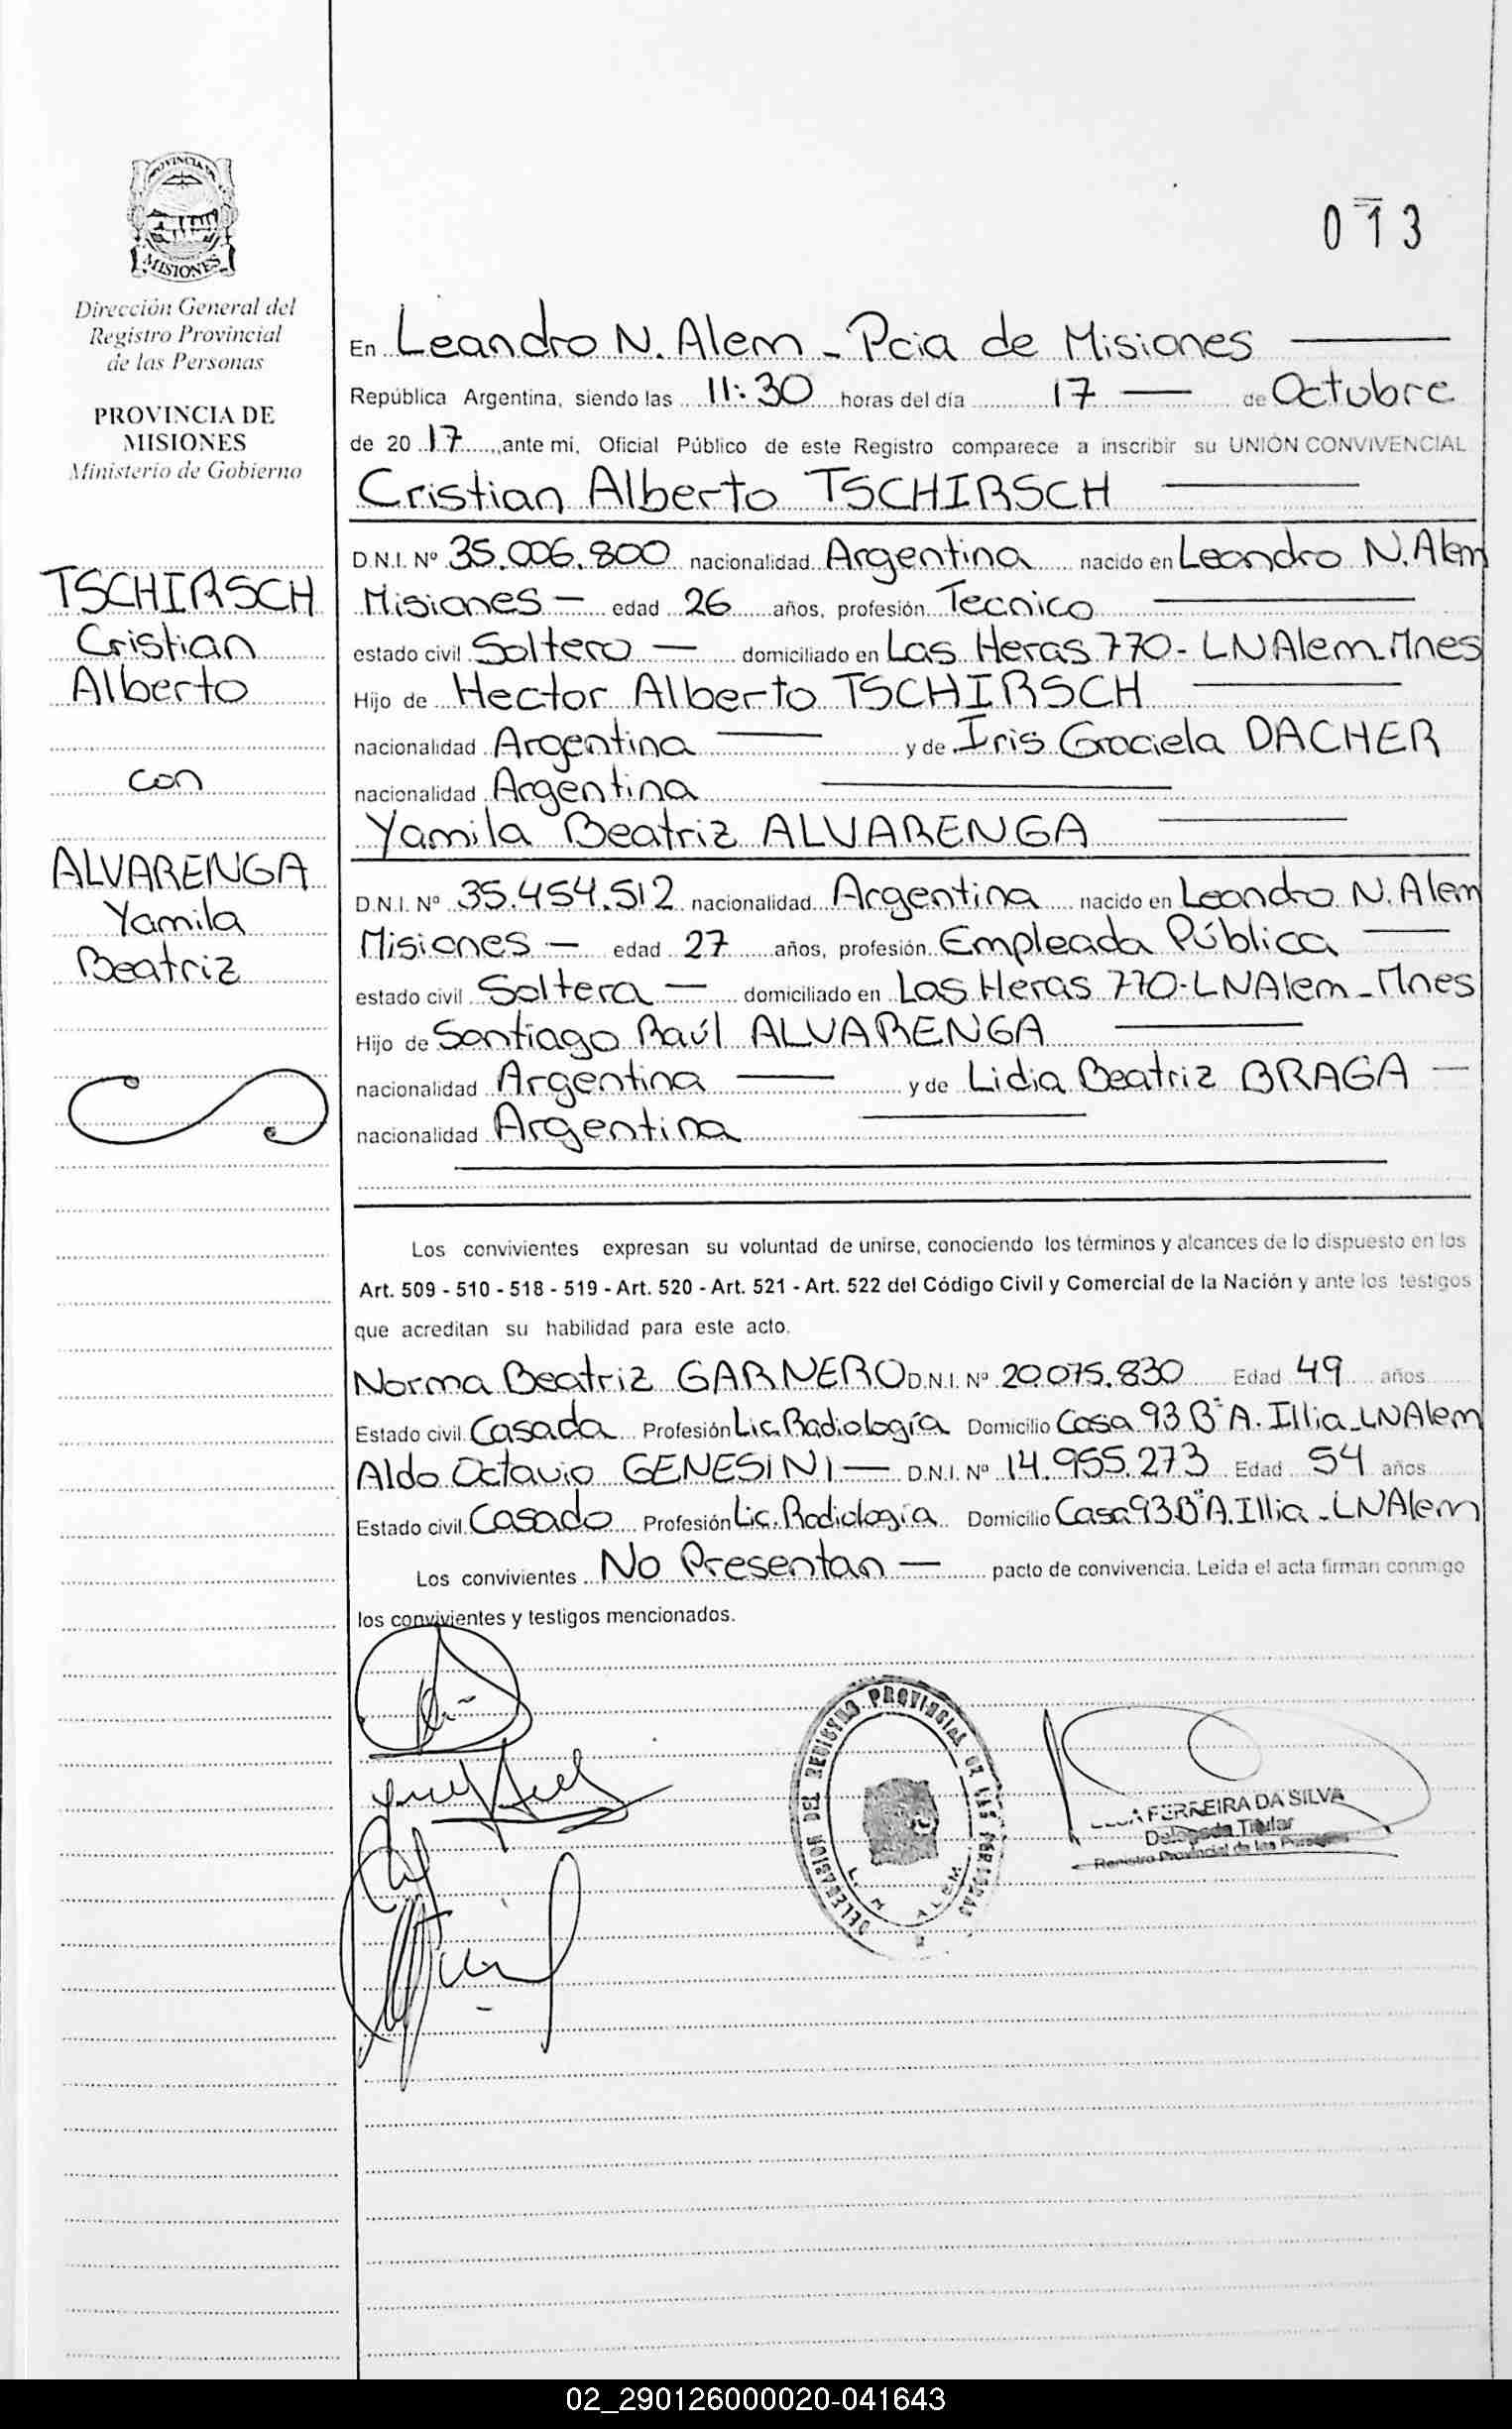 PROVINCIA DE
MISIONES
Dirección General del
Registro Provincial
de las Personas
PROVINCIA DE
MISIONES
Ministerio de Gobierno
TSCHIRSCH
Cristian
Alberto
con
ALVARENGA
Yamila
Beatriz
013
En Leandro N. Alem - Pcia de Misiones
República Argentina, siendo las 11:30 horas del día 17 — de Octubre
de 20 17, ante mi, Oficial Público de este Registro comparece a inscribir su UNIÓN CONVIVENCIAL
Cristian Alberto TSCHIRSCH
D.N.I. Nº 35.006.800 nacionalidad Argentina nacido en Leandro N. Alem
Misiones — edad 26 años, profesión Tecnico
estado civil Soltero — domiciliado en Las Heras 770- LNAlem-Mnes
Hijo de Hector Alberto TSCHIRSCH
nacionalidad Argentina — y de Iris Graciela DACHER
nacionalidad Argentina
Yamila Beatriz ALVARENGA
D.N.I. Nº 35.454.512 nacionalidad Argentina nacido en Leandro N. Alem
Misiones — edad 27 años, profesión Empleada Pública —
estado civil Soltera — domiciliado en Las Heras 770-LNAlem-Mnes
Hijo de Santiago Raúl ALVARENGA
nacionalidad Argentina — y de Lidia Beatriz BRAGA —
nacionalidad Argentina
Los convivientes expresan su voluntad de unirse, conociendo los términos y alcances de lo dispuesto en los
Art. 509 - 510 - 518 - 519 - Art. 520 - Art. 521 - Art. 522 del Código Civil y Comercial de la Nación y ante los testigos
que acreditan su habilidad para este acto.
Norma Beatriz GARNERO D.N.I. Nº 20.075.830 Edad 49 años
Estado civil Casada Profesión Lic. Radiología Domicilio Casa 93 Bº A. Illia-LNAlem
Aldo Octavio GENESINI — D.N.I. Nº 14.955.273 Edad 54 años
Estado civil Casado Profesión Lic. Radiología Domicilio Casa 93 Bº A. Illia-LNAlem
Los convivientes No Presentan — pacto de convivencia. Leida el acta firman conmigo
los convivientes y testigos mencionados.
DELEGACION DEL REGISTRO PROVINCIAL DE LAS PERSONAS
L. N. ALEM
FERREIRA DA SILVA
Delegada Titular
Registro Provincial de las Personas
02_290126000020-041643